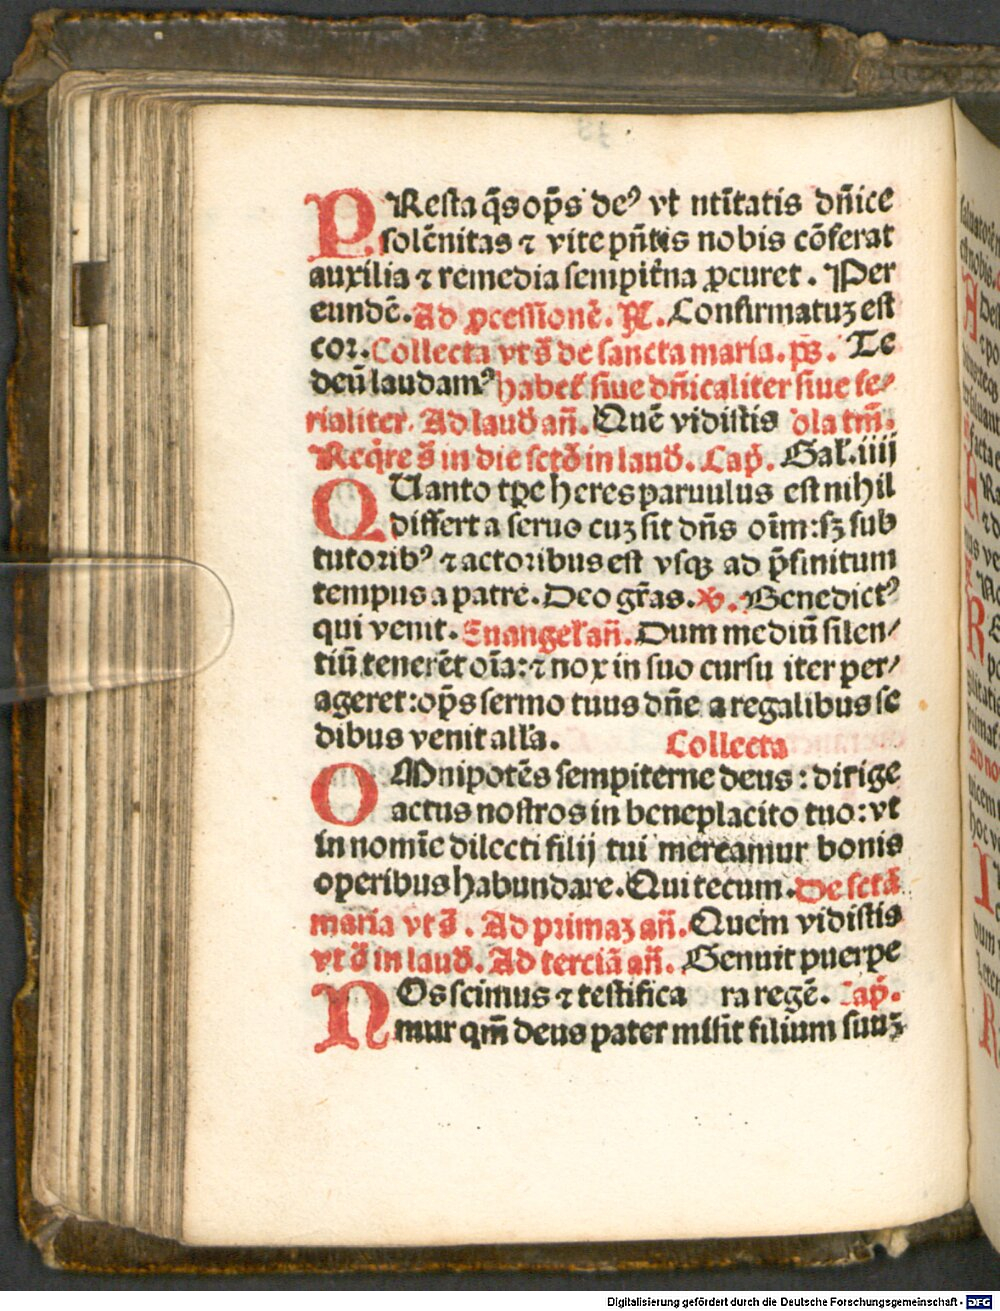 PResta q̄s op̄s deꝰ vt ntītatis dn̄ice
solēnitas ⁊ vite pn̄tis nobis cōferat
auxilia ⁊ remedia sempit̄na ꝓcuret. Per
eundē. Ad ꝓcessionē. R̄. Confirmatuꝫ est
cor. Collecta vt s̄ de sancta maria. ps̄. Te
deū laudamꝰ habet̄ siue dn̄icaliter siue fe⸗
rialiter. Ad laud̄ an̄. Quē vidistis ola tm̄.
Req̄re s̄ in die sctō in laud̄. Cap̄. Gal̄. iiij
QUanto tp̄e heres paruulus est nihil
differt a seruo cuꝫ sit dn̄s oīm: sꝫ sub
tutoribꝰ ⁊ actoribus est vsqꝫ ad p̄finitum
tempus a patre. Deo gr̄as. ℣. Benedictꝰ
qui venit. Euangel̄ an̄. Dum mediū silen⸗
tiū tenerēt oīa: ⁊ nox in suo cursu iter per⸗
ageret: op̄s sermo tuus dn̄e a regalibus se
dibus venit alla. Collecta
OMnipotēs sempiterne deus: dirige
actus nostros in beneplacito tuo: vt
in nomīe dilecti filij tui mereamur bonis
operibus habundare. Qui tecum. De sctā
maria vt s̄. Ad primaꝫ an̄. Quem vidistis
vt s̄ in laud̄. Ad terciā an̄. Genuit puerpe
NOs scimus ⁊ testifica ra regē. Cap̄.
mur qm̄ deus pater misit filium suuꝫ
Digitalisierung gefördert durch die Deutsche Forschungsgemeinschaft - DFG